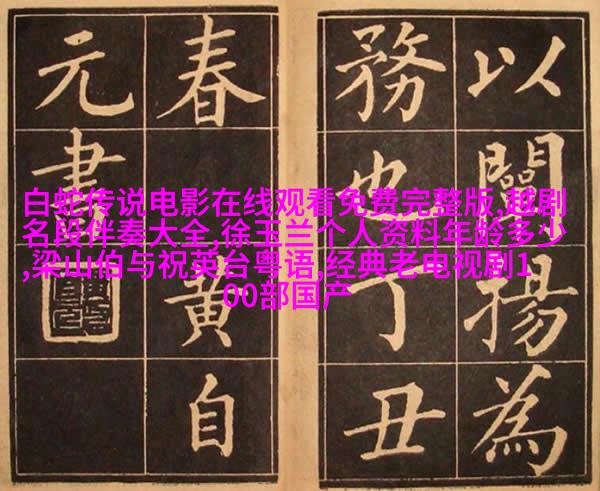 以闡揚為
務也丁丑
春 黃自
元書
白蛇传说电影在线观看免费完整版,越剧
名段伴奏大全,徐玉兰个人资料年龄多少
,梁山伯与祝英台粤语,经典老电视剧1
00部国产